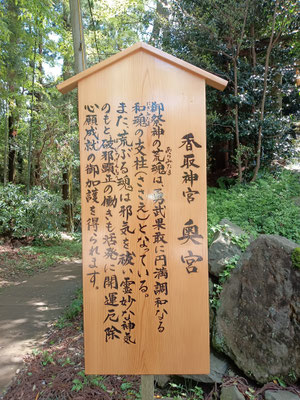 香取神宮 奥宮
あらみたま
御祭神の荒魂は、勇武果敢に円満調和なる
和魂の支柱(ささえ)となっている。
また、荒ぶる魂は邪気を祓い霊妙な神気
のもと、破邪顕正の働きも活発に開運厄除
心願成就の御加護を得られます。